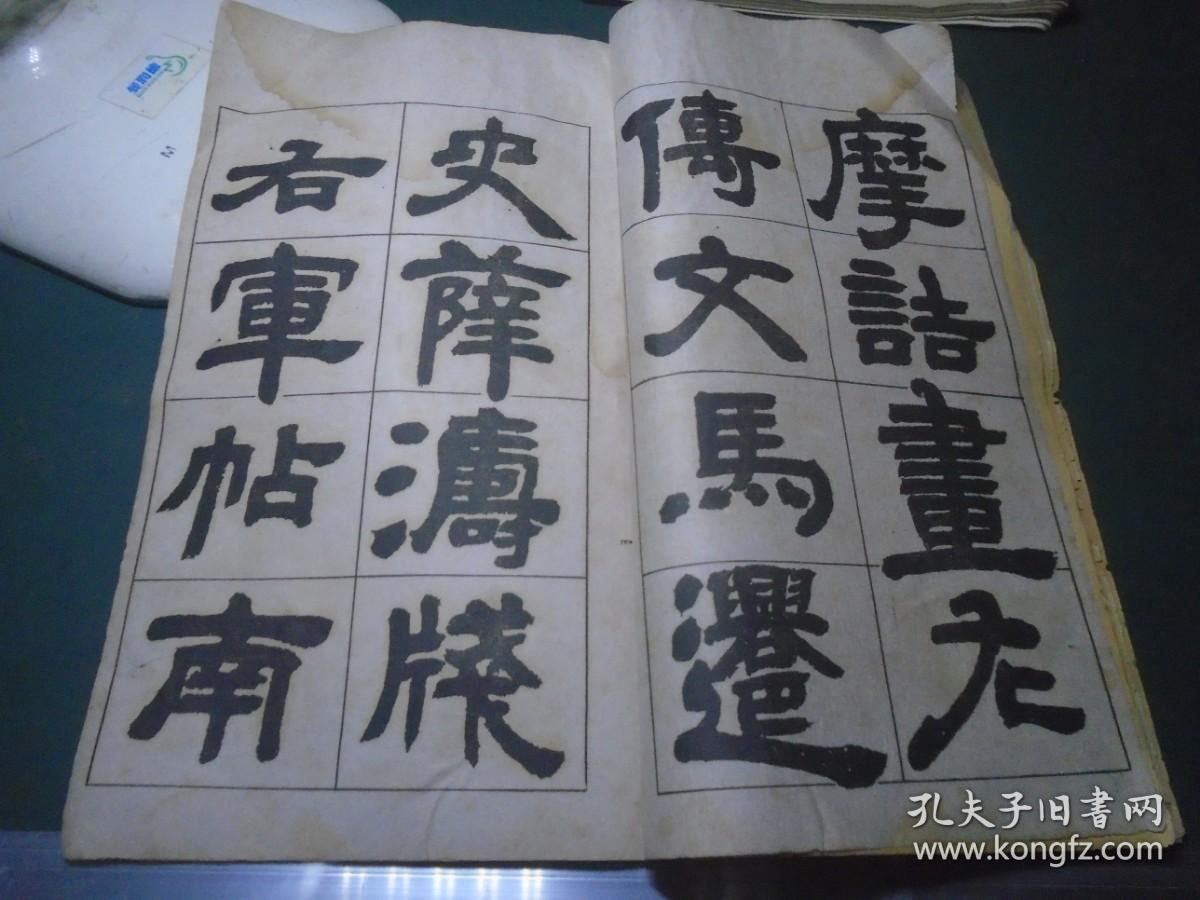 摩詰畫左
傳文馬遷
史薛濤牋
右軍帖南
孔夫子旧书网
www.kongfz.com